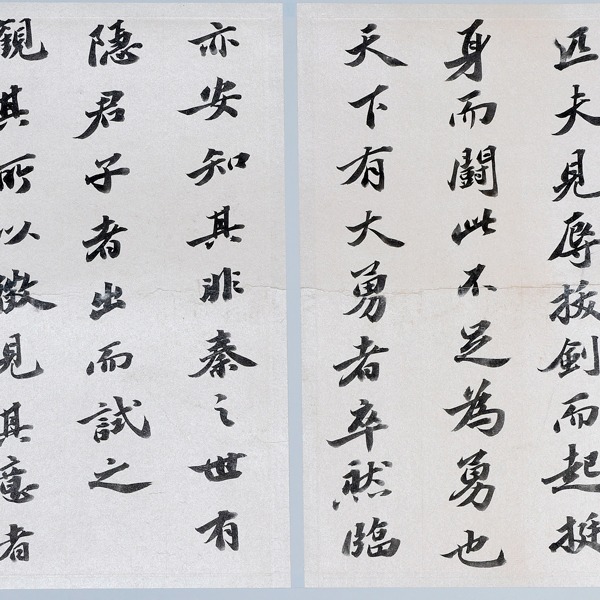 匹夫見辱拔劍而起挺
身而鬬此不足為勇也
天下有大勇者卒然臨
亦安知其非秦之世有
隱君子者出而試之
觀其所以微見其意者